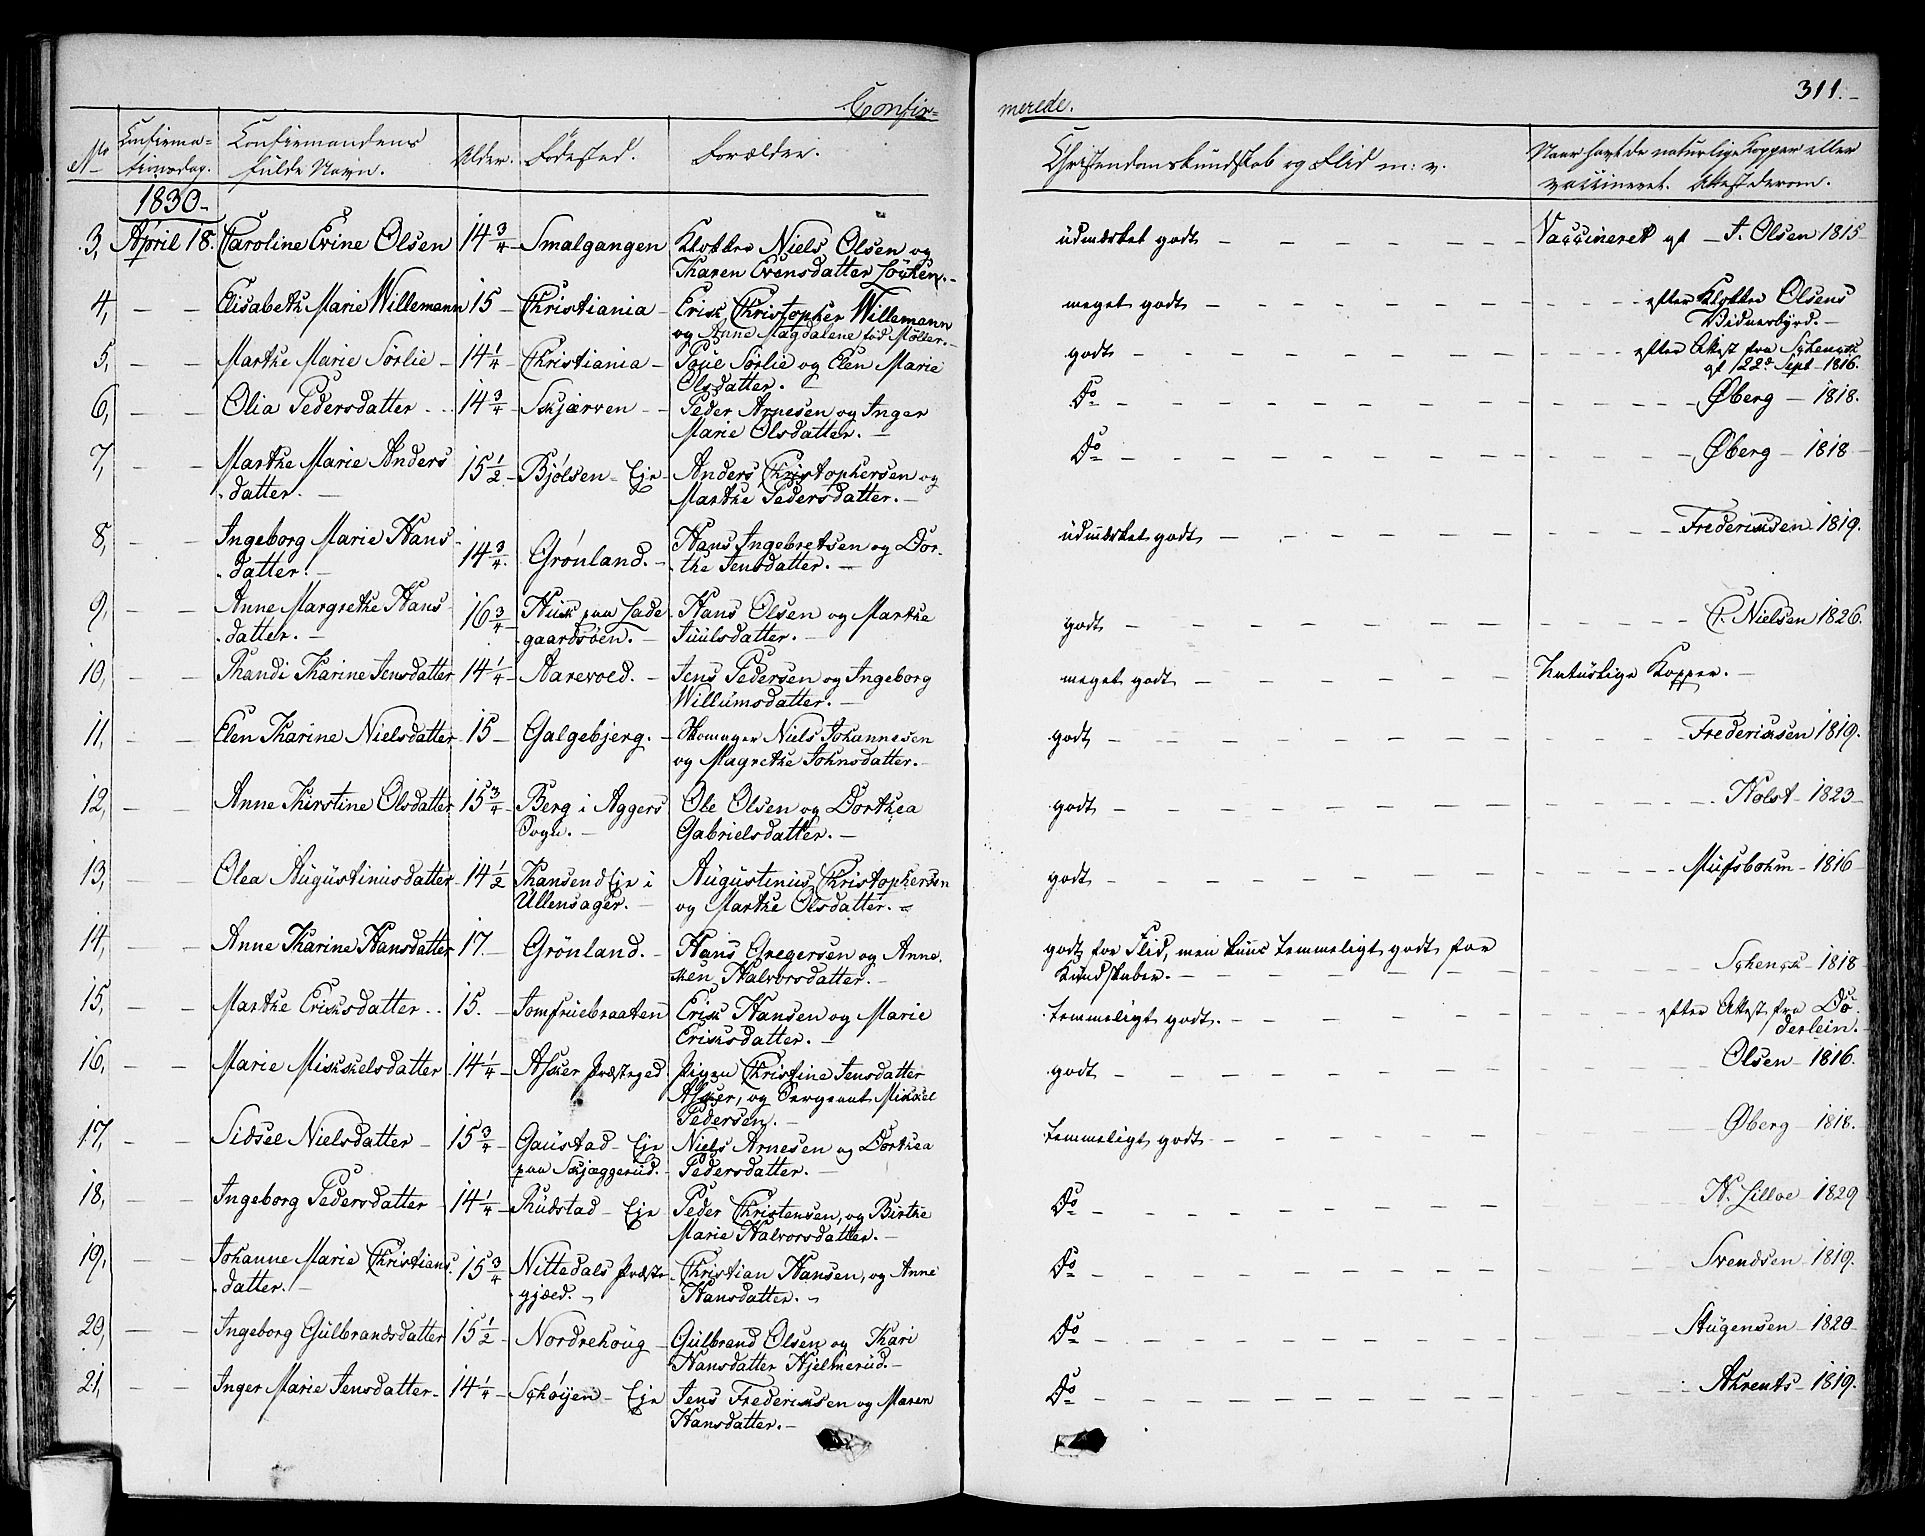 311.
Confir=
merede.
No
Confirma-
tionsdag.
Confirmandens
fulde Navn.
Alder.
Födested.
Forældre.
Christendomskundskab og Flid m: v.
Naar havt de naturlige Kopper eller
vaccineret. Attest derom.
1830.
3, April 18. Caroline Evine Olsen 14 3/4 Smalgangen Klokker Niels Olsen og
Karen Evensdatter Löcken.
udmærket godt Vaccineret af J. Olsen 1815
4, Elisabeth Marie Willemann 15 Christiania Erisk Christopher Willemann
og Anne Magdalene föd Möller.
meget godt efter Klokker Olsens
Vidnesbyrd.
5, Marthe Marie Sörlie 14 1/4 Christiania Poul Sörlie og Elen Marie
Olsdatter.
godt efter Attest fra Schenck
af 22de Sept 1816.
6, Olia Pedersdatter 14 3/4 Skjærven Peder Arnesen og Inger
Marie Olsdatter.
Do Øberg 1818.
7, Marthe Marie Anders
datter. 15 1/2 Bjölsen Eje Anders Christophersen og
Marthe Pedersdatter.
Do Øberg 1818
8, Ingeborg Marie Hans
datter. 14 3/4 Grönland. Hans Ingebretsen og Dor-
the Jensdatter.
udmærket godt Fredericksen 1819.
9, Anne Margrethe Hans
datter. 16 3/4 Huuk paa Lade
gaardsöen. Hans Olsen og Marthe
Juulsdatter.
godt C. Nielsen 1826.
10, Randi Karine Jensdatter 14 1/4 Aarevold. Jens Pedersen og Ingeborg
Willumsdatter.
meget godt Naturlige Kopper.
11, Elen Karine Nielsdatter 15 Galgebjerg. Skomager Niels Johannesen
og Magrethe Johnsdatter.
godt Fredericksen 1819.
12, Anne Kirstine Olsdatter 15 3/4 Berg i Aggers
Sogn. Ole Olsen og Dorthea
Gabrielsdatter.
godt Holst 1823
13, Olea Augustinusdatter 14 1/2 Kansend Eje i
Ullensager. Augustinus Christophersen
og Marthe Olsdatter.
godt Mussbohm 1816
14, Anne Karine Hansdatter 17. Grönland. Hans Gregersen og Anne
ken Halvorsdatter.
godt for Flid, men kuns temmeligt godt for
Kundskaber. Schenck 1818
15, Marthe Ericksdatter 15. Jomfruebraaten Erick Hansen og Marie
Ericksdatter.
temmeligt godt. efter Attest fra Dö-
derlein.
16, Marie Mickkelsdatter 14 1/4 Asker Præstegjed Pigen Christine Jensdatter
Asker, og Sergeant Mickel
Pedersen.
godt Olsen 1816.
17, Sidsel Nielsdatter 15 3/4 Gaustad Eje
paa Skjæggerud. Niels Arnesen og Dorthea
Pedersdatter.
temmeligt godt Øberg 1818.
18, Ingeborg Pedersdatter 14 1/4 Rudstad Eje Peder Christensen, og Birthe
Marie Halvorsdatter.
Do N. Lilloe 1829
19, Johanne Marie Christians
datter. 15 3/4 Nittedals Præste
gjæld. Christian Hansen, og Anne
Hansdatter.
Do Svendsen 1819.
20, Ingeborg Gulbrandsdatter 15 1/2 Nordrehoug Gulbrand Olsen og Kari
Hansdatter Hjelmerud.
Do Stügensen 1820
21, Inger Marie Jensdatter 14 1/4 Schöyen Eje Jens Fredericksen og Maren
Hansdatter.
Do Ahrents 1819.